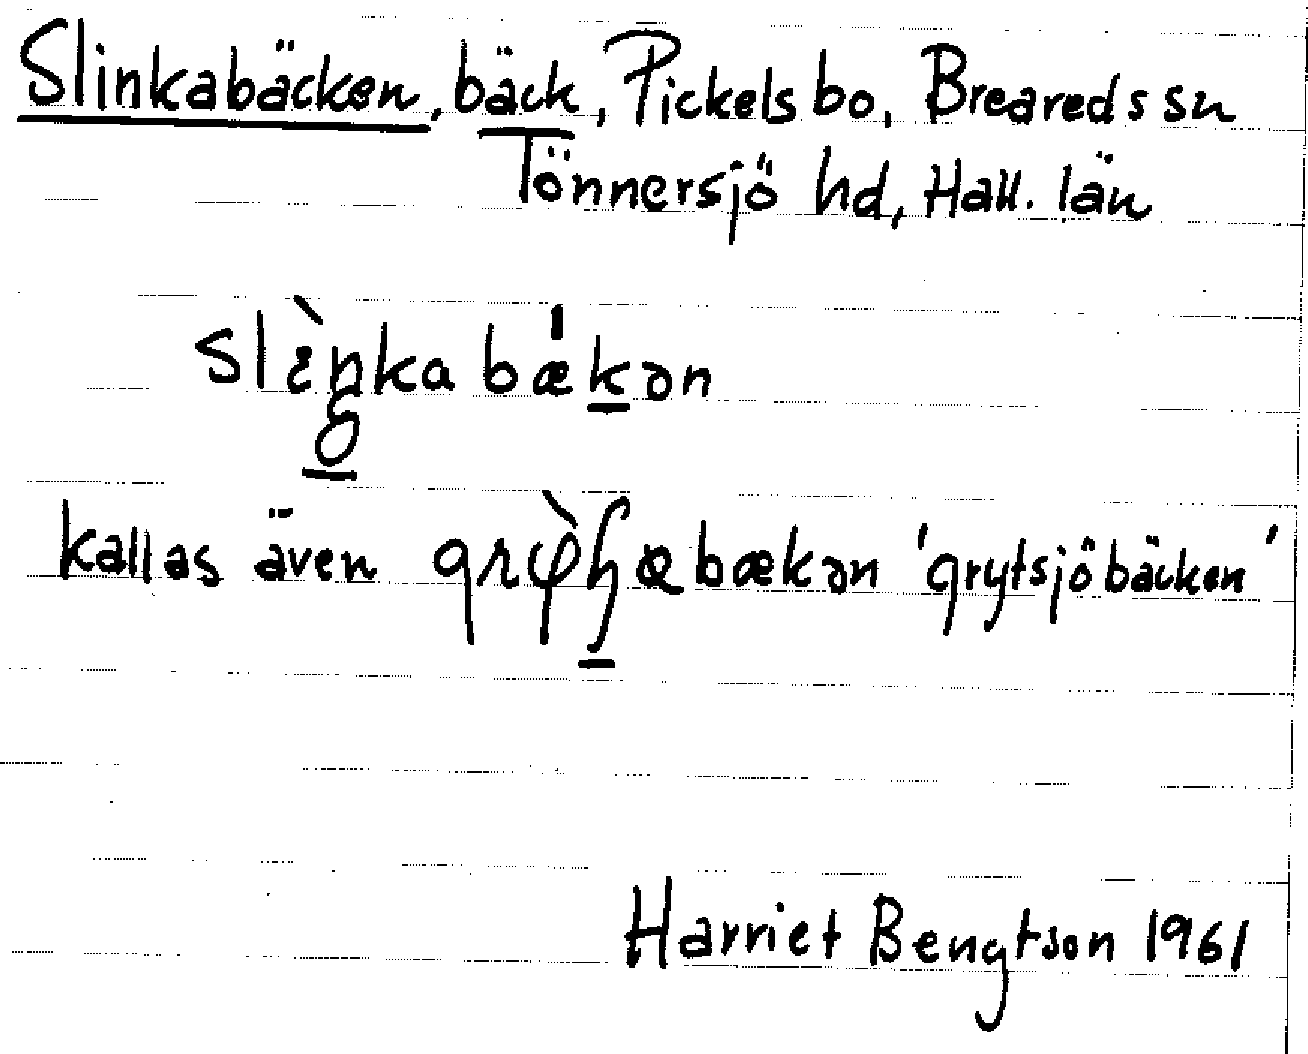 Slinkabäcken, bäck, Pickelsbo, Breareds sn
Tönnersjö hd, Hall. län
slìŋkabǽkən
kallas även grφ̀ɧæbækən 'grytsjöbäcken'
Harriet Bengtson 1961